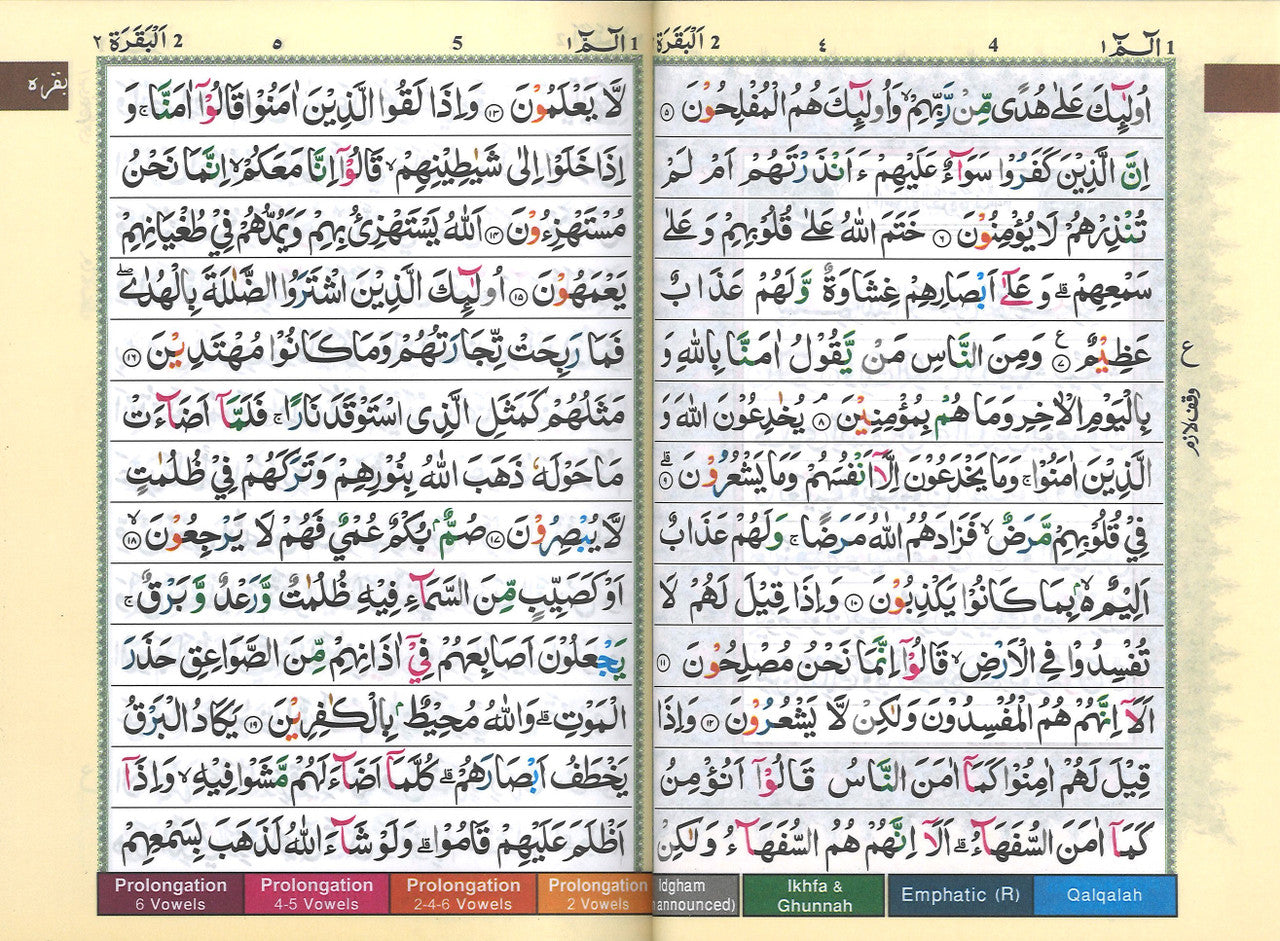 1 الٓـمّٓ ١ 4 ٤ 2 اَلْبَقَرَة
اُولٰٓئِكَ عَلٰى هُدًى مِّنْ رَّبِّهِمْ ۙ وَاُولٰٓئِكَ هُمُ الْمُفْلِحُوْنَ ۝٥
اِنَّ الَّذِيْنَ كَفَرُوْا سَوَآءٌ عَلَيْهِمْ ءَاَنْذَرْتَهُمْ اَمْ لَمْ
تُنْذِرْهُمْ لَا يُؤْمِنُوْنَ ۝٦ خَتَمَ اللّٰهُ عَلٰى قُلُوْبِهِمْ وَعَلٰى
سَمْعِهِمْ ؕ وَعَلٰٓى اَبْصَارِهِمْ غِشَاوَةٌ وَّلَهُمْ عَذَابٌ
عَظِيْمٌ ۝٧ ع وَمِنَ النَّاسِ مَنْ يَّقُوْلُ اٰمَنَّا بِاللّٰهِ وَ
بِالْيَوْمِ الْاٰخِرِ وَمَا هُمْ بِمُؤْمِنِيْنَ ۘ۝٨ يُخٰدِعُوْنَ اللّٰهَ وَ
الَّذِيْنَ اٰمَنُوْا ۚ وَمَا يَخْدَعُوْنَ اِلَّآ اَنْفُسَهُمْ وَمَا يَشْعُرُوْنَ ؕ۝٩
فِيْ قُلُوْبِهِمْ مَّرَضٌ ۙ فَزَادَهُمُ اللّٰهُ مَرَضًا ۚ وَلَهُمْ عَذَابٌ
اَلِيْمٌۢ ۙ۬ بِمَا كَانُوْا يَكْذِبُوْنَ ۝١٠ وَاِذَا قِيْلَ لَهُمْ لَا
تُفْسِدُوْا فِى الْاَرْضِ ۙ قَالُوْٓا اِنَّمَا نَحْنُ مُصْلِحُوْنَ ۝١١
اَلَآ اِنَّهُمْ هُمُ الْمُفْسِدُوْنَ وَلٰكِنْ لَّا يَشْعُرُوْنَ ۝١٢ وَاِذَا
قِيْلَ لَهُمْ اٰمِنُوْا كَمَآ اٰمَنَ النَّاسُ قَالُوْٓا اَنُؤْمِنُ
كَمَآ اٰمَنَ السُّفَهَآءُ ؕ اَلَآ اِنَّهُمْ هُمُ السُّفَهَآءُ وَلٰكِنْ
ع
وقف لازم
1 الٓـمّٓ ١ 5 ٥ 2 اَلْبَقَرَة ٢
بقره
لَّا يَعْلَمُوْنَ ۝١٣ وَاِذَا لَقُوا الَّذِيْنَ اٰمَنُوْا قَالُوْٓا اٰمَنَّا ۚ وَ
اِذَا خَلَوْا اِلٰى شَيٰطِيْنِهِمْ ۙ قَالُوْٓا اِنَّا مَعَكُمْ ۙ اِنَّمَا نَحْنُ
مُسْتَهْزِءُوْنَ ۝١٤ اَللّٰهُ يَسْتَهْزِئُ بِهِمْ وَيَمُدُّهُمْ فِيْ طُغْيَانِهِمْ
يَعْمَهُوْنَ ۝١٥ اُولٰٓئِكَ الَّذِيْنَ اشْتَرَوُا الضَّلٰلَةَ بِالْهُدٰى ۪
فَمَا رَبِحَتْ تِّجَارَتُهُمْ وَمَا كَانُوْا مُهْتَدِيْنَ ۝١٦
مَثَلُهُمْ كَمَثَلِ الَّذِى اسْتَوْقَدَ نَارًا ۚ فَلَمَّآ اَضَآءَتْ
مَا حَوْلَهٗ ذَهَبَ اللّٰهُ بِنُوْرِهِمْ وَتَرَكَهُمْ فِيْ ظُلُمٰتٍ
لَّا يُبْصِرُوْنَ ۝١٧ صُمٌّۢ بُكْمٌ عُمْيٌ فَهُمْ لَا يَرْجِعُوْنَ ۙ۝١٨
اَوْ كَصَيِّبٍ مِّنَ السَّمَآءِ فِيْهِ ظُلُمٰتٌ وَّرَعْدٌ وَّبَرْقٌ ۚ
يَجْعَلُوْنَ اَصَابِعَهُمْ فِيْٓ اٰذَانِهِمْ مِّنَ الصَّوَاعِقِ حَذَرَ
الْمَوْتِ ؕ وَاللّٰهُ مُحِيْطٌۢ بِالْكٰفِرِيْنَ ۝١٩ يَكَادُ الْبَرْقُ
يَخْطَفُ اَبْصَارَهُمْ ؕ كُلَّمَآ اَضَآءَ لَهُمْ مَّشَوْا فِيْهِ ۙ وَاِذَآ
اَظْلَمَ عَلَيْهِمْ قَامُوْا ؕ وَلَوْ شَآءَ اللّٰهُ لَذَهَبَ بِسَمْعِهِمْ
Prolongation 6 Vowels
Prolongation 4-5 Vowels
Prolongation 2-4-6 Vowels
Prolongation 2 Vowels
Idgham
announced)
Ikhfa & Ghunnah
Emphatic (R)
Qalqalah